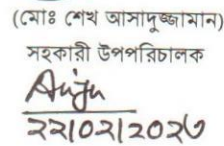 (মোঃ শেখ আসাদুজ্জামান)
সহকারী উপপরিচালক
২২/০২/২০২৩